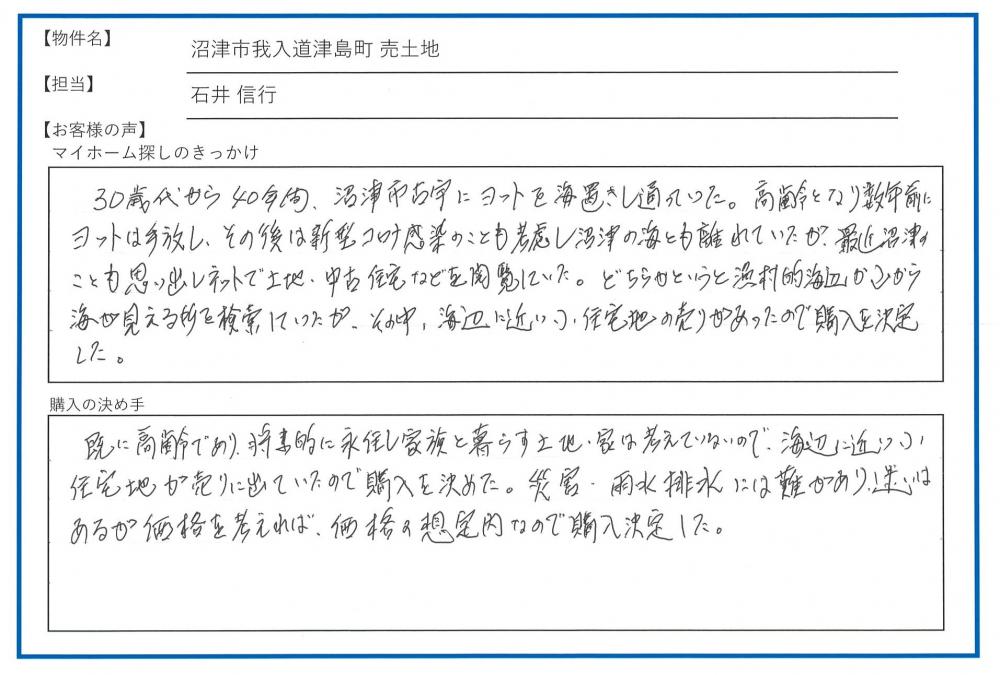 【物件名】
沼津市我入道津島町 売土地
【担当】
石井 信行
【お客様の声】
マイホーム探しのきっかけ
30歳代から40年間、沼津市古宇にヨットを海置きし通っていた。高齢となり数年前に
ヨットは手放し、その後は新型コロナ感染のことも考慮し沼津の海とも離れていたが、最近沼津の
ことも思い出しネットで土地・中古住宅などを閲覧していた。どちらかというと漁村的海辺か から
海が見える を検索していたが、その中、海辺に近い 住宅地の売りがあったので購入を決定
した。
購入の決め手
既に高齢であり、将来的に永住し家族と暮らす土地・家は考えていないので、海辺に近い
住宅地が売りに出ていたので購入を決めた。災害・雨水排水には難があり、迷いは
あるが価格を考えれば、価格の想定内なので購入決定した。